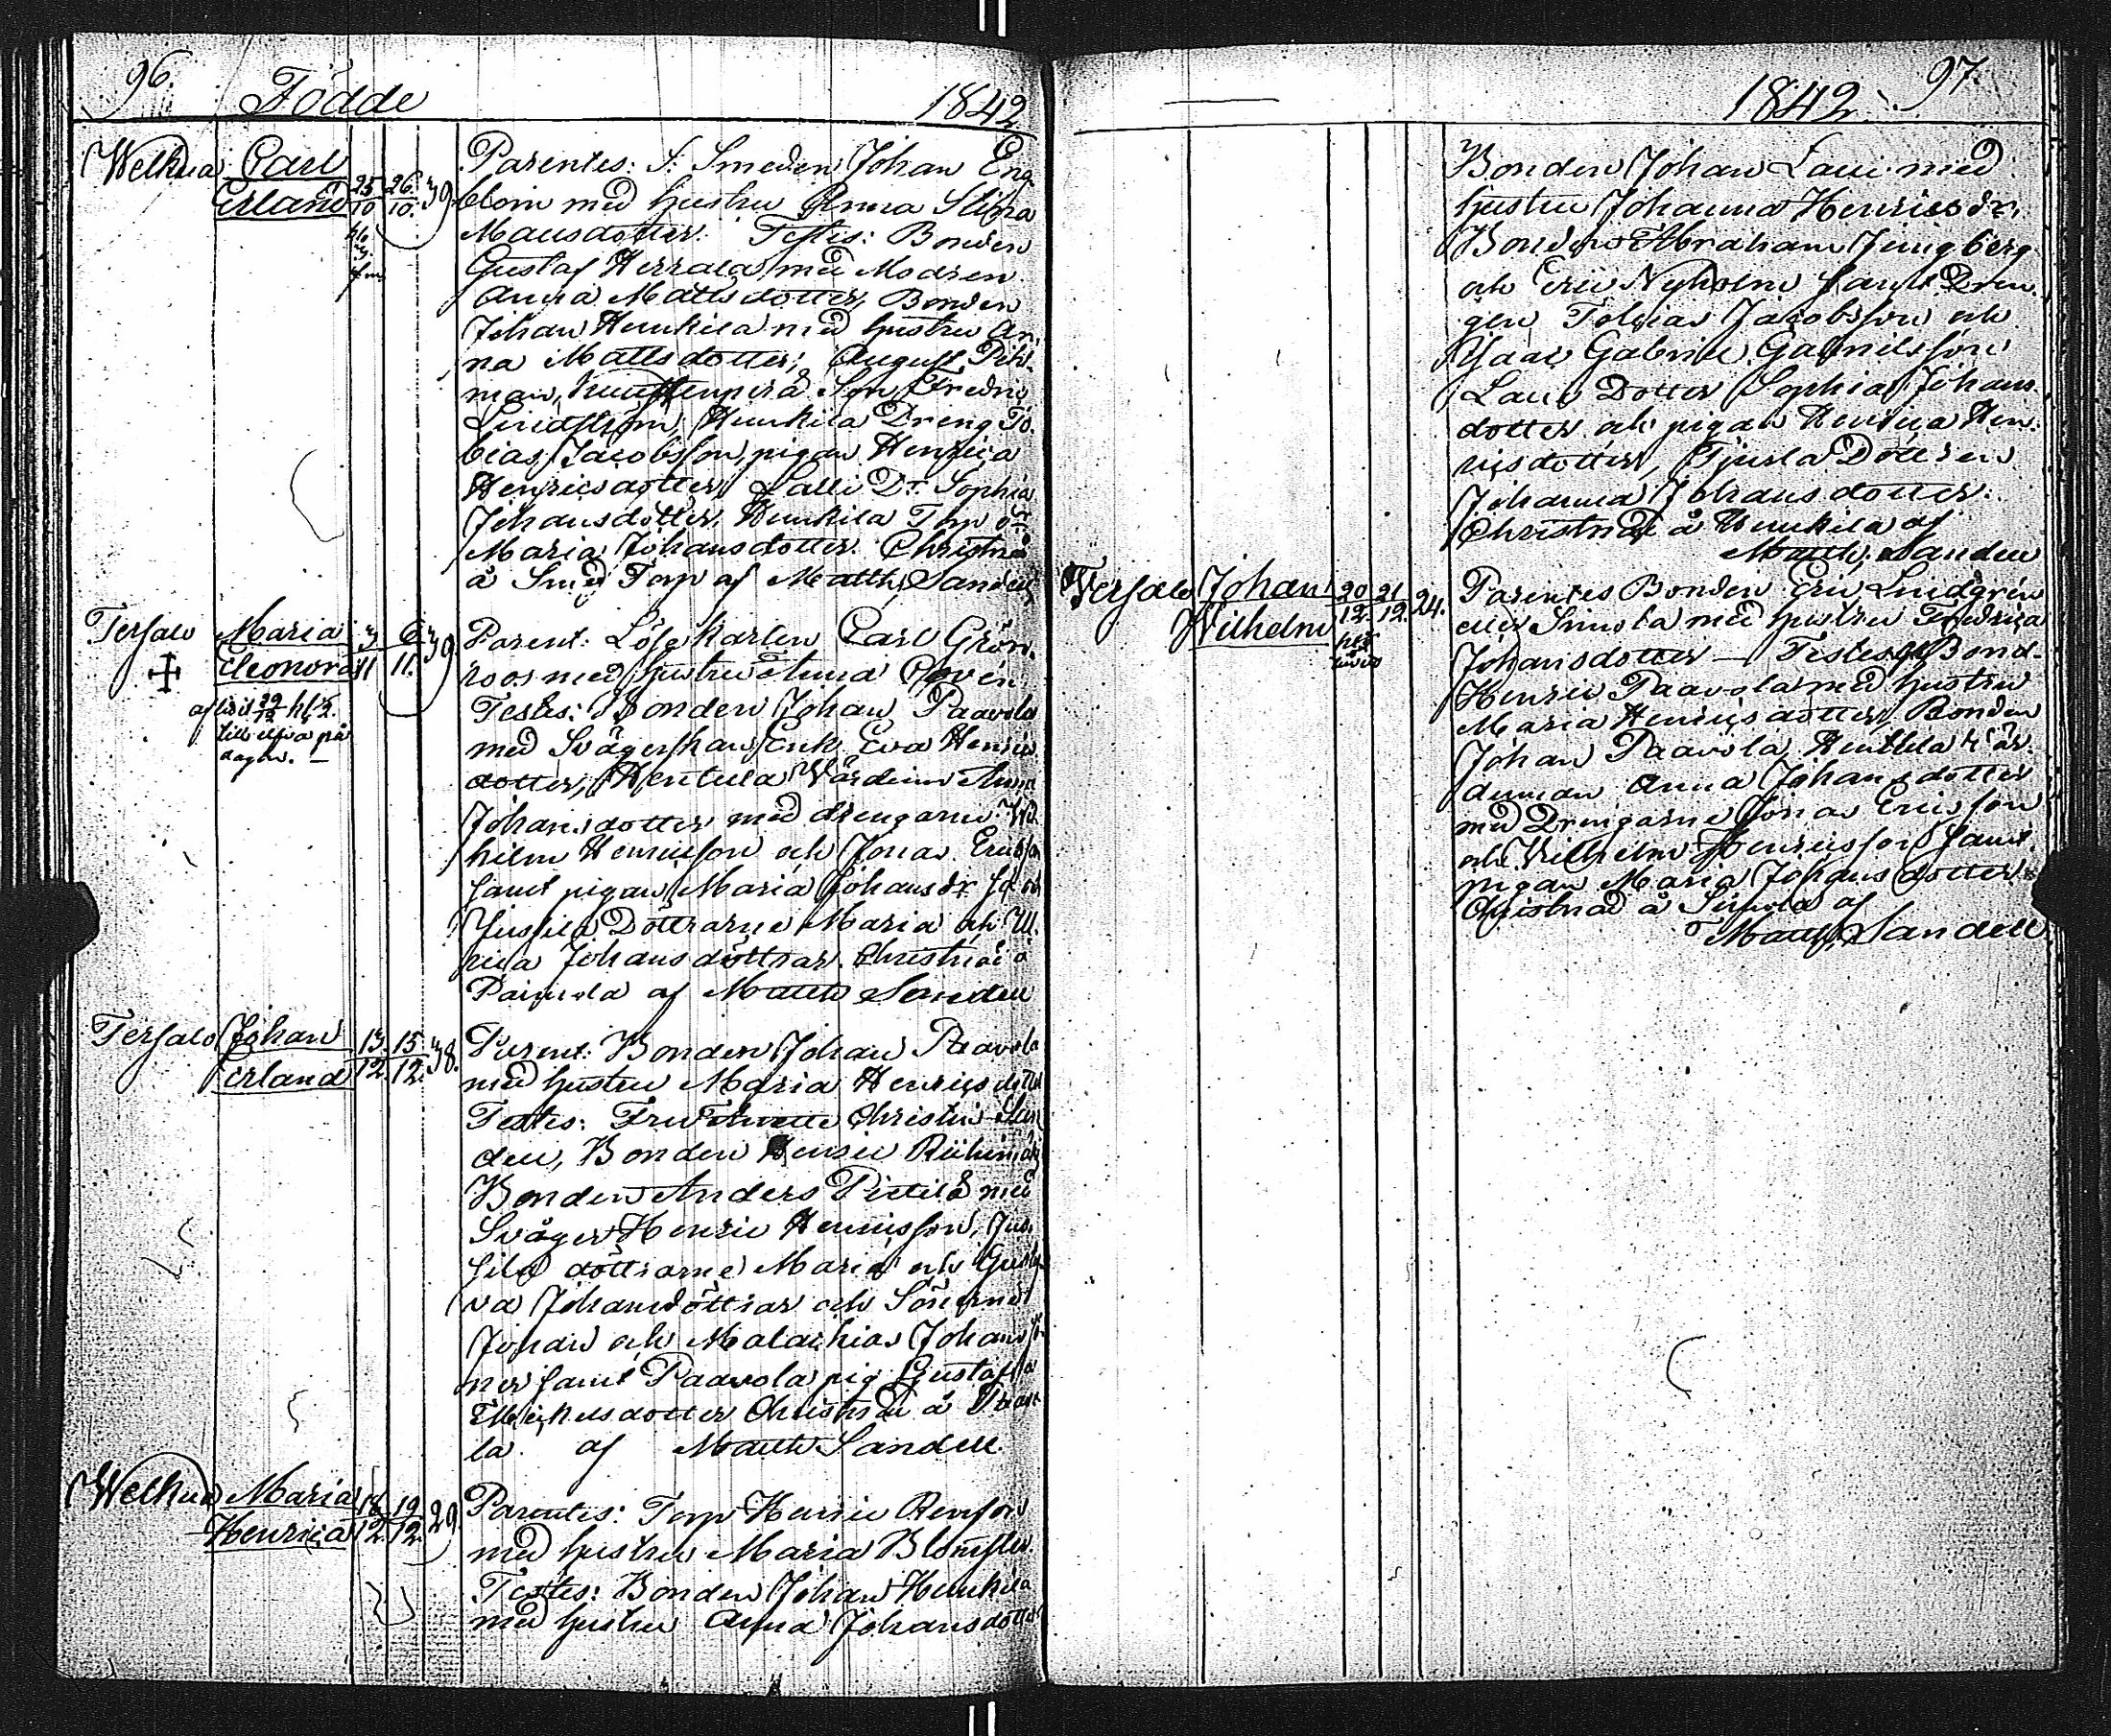 96.
Födde 1842
Welkua Carl Erland 25/10 26/10 39.
Parentes: S: Smeden Johan Eng
blom med hustru Anna Stina
Mattsdotter. Testes: Bonden
Gustaf Herrala med Modren
Anna Mattsdotter, Bonden
Johan Heukila med hustru An
na Mattsdotter, August
man, Son
Lindström, Heukila Dreng To
bias Jacobsson, pigan Henrica
Henricsdotter, Lalli Dr. Sophia
Johansdotter, Heukila Torp dr
Maria Johansdotter. Christnad
å Smed Torp af Matth: Sandell
Tersalo Maria Eleonora 3/11 6/11. 39
afled 22/12
till elfva på
dagen. —
Parent: Lösekarlen Carl Grön
roos med hustru Anna
Testes: Bonden Johan Paavola
med Svägerskan Enk. Eva Henrics
dotter, Hentula Värdinn Anna
Johansdotter med drengarne Wil
helm Henricsson och Jonas Ericsson
samt pigan Maria Johansdr
Jussila Döttrarne Maria och Ul
rica Johansdöttrar. Christnad å
af Matth Sandell
Tersalo Johan Erland 13/12. 15/12. 38.
Parent: Bonden Johan Paavola
med hustru Maria Henricsdotter
Testes: Fru Christin San
dell, Bonden Henric Riihimäki
Bonden Anders Pietilä med
Svåger Henric Henricsson, Jus
sila döttrarne Maria och Gusta
va Johansdöttrar och Sönerne
Johan och Malachias Johansso
ner samt Paavola pig Gustafva
Michelsdotter Christnad å Paavo
la af Matth Sandell.
Welkua Maria Henrica 18/12. 19/12. 29.
Parentes: Torp Henric
med hustru Maria Blomster.
Testes: Bonden Johan Heukila
med hustru Anna Johansdotter
1842. 97.
Bonden Johan Lalli med
hustru Johanna Henricsdr,
Bonden Abraham Ljungberg
och Eric Nyholm samt Dren
gen Tobias Jacobsson och
Isaac Gabriel Gabrielsson
Lalli Dotter Sophia Johans
dotter och pigan Henrica Hen
ricsdotter, Dottren
Johanna Johansdotter.
Christnad å Heukila af
Matth: Sandell
Tersalo Johan Wilhelm 20/12. 21/12. 24.
Parentes Bonden Eric Lindgren
eller Simola med hustru Fredrica
Johansdotter — Testes: Bond.
Henric Paavola med hustru
Maria Henricsdotter, Bonden
Johan Paavola, Hentula Vär
dinnan Anna Johansdotter
med Drengarne Jonas Ericsson
och Wilhelm Henricsson samt
pigan Maria Johansdotter.
Christnad å Simola af
Matth: Sandell